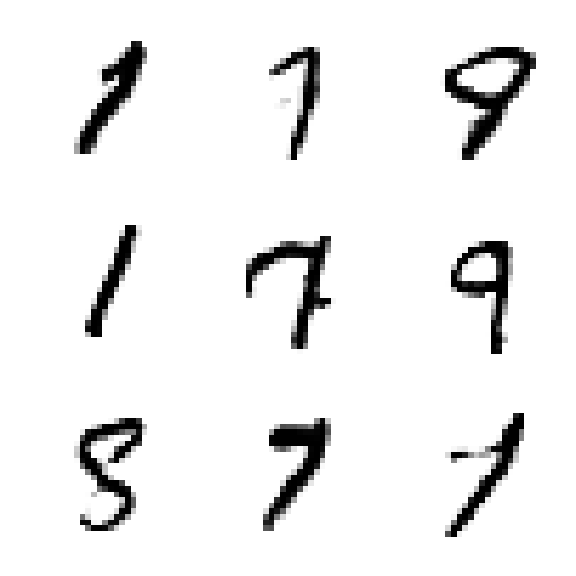 1 7 9
1 7 9
8 7 7